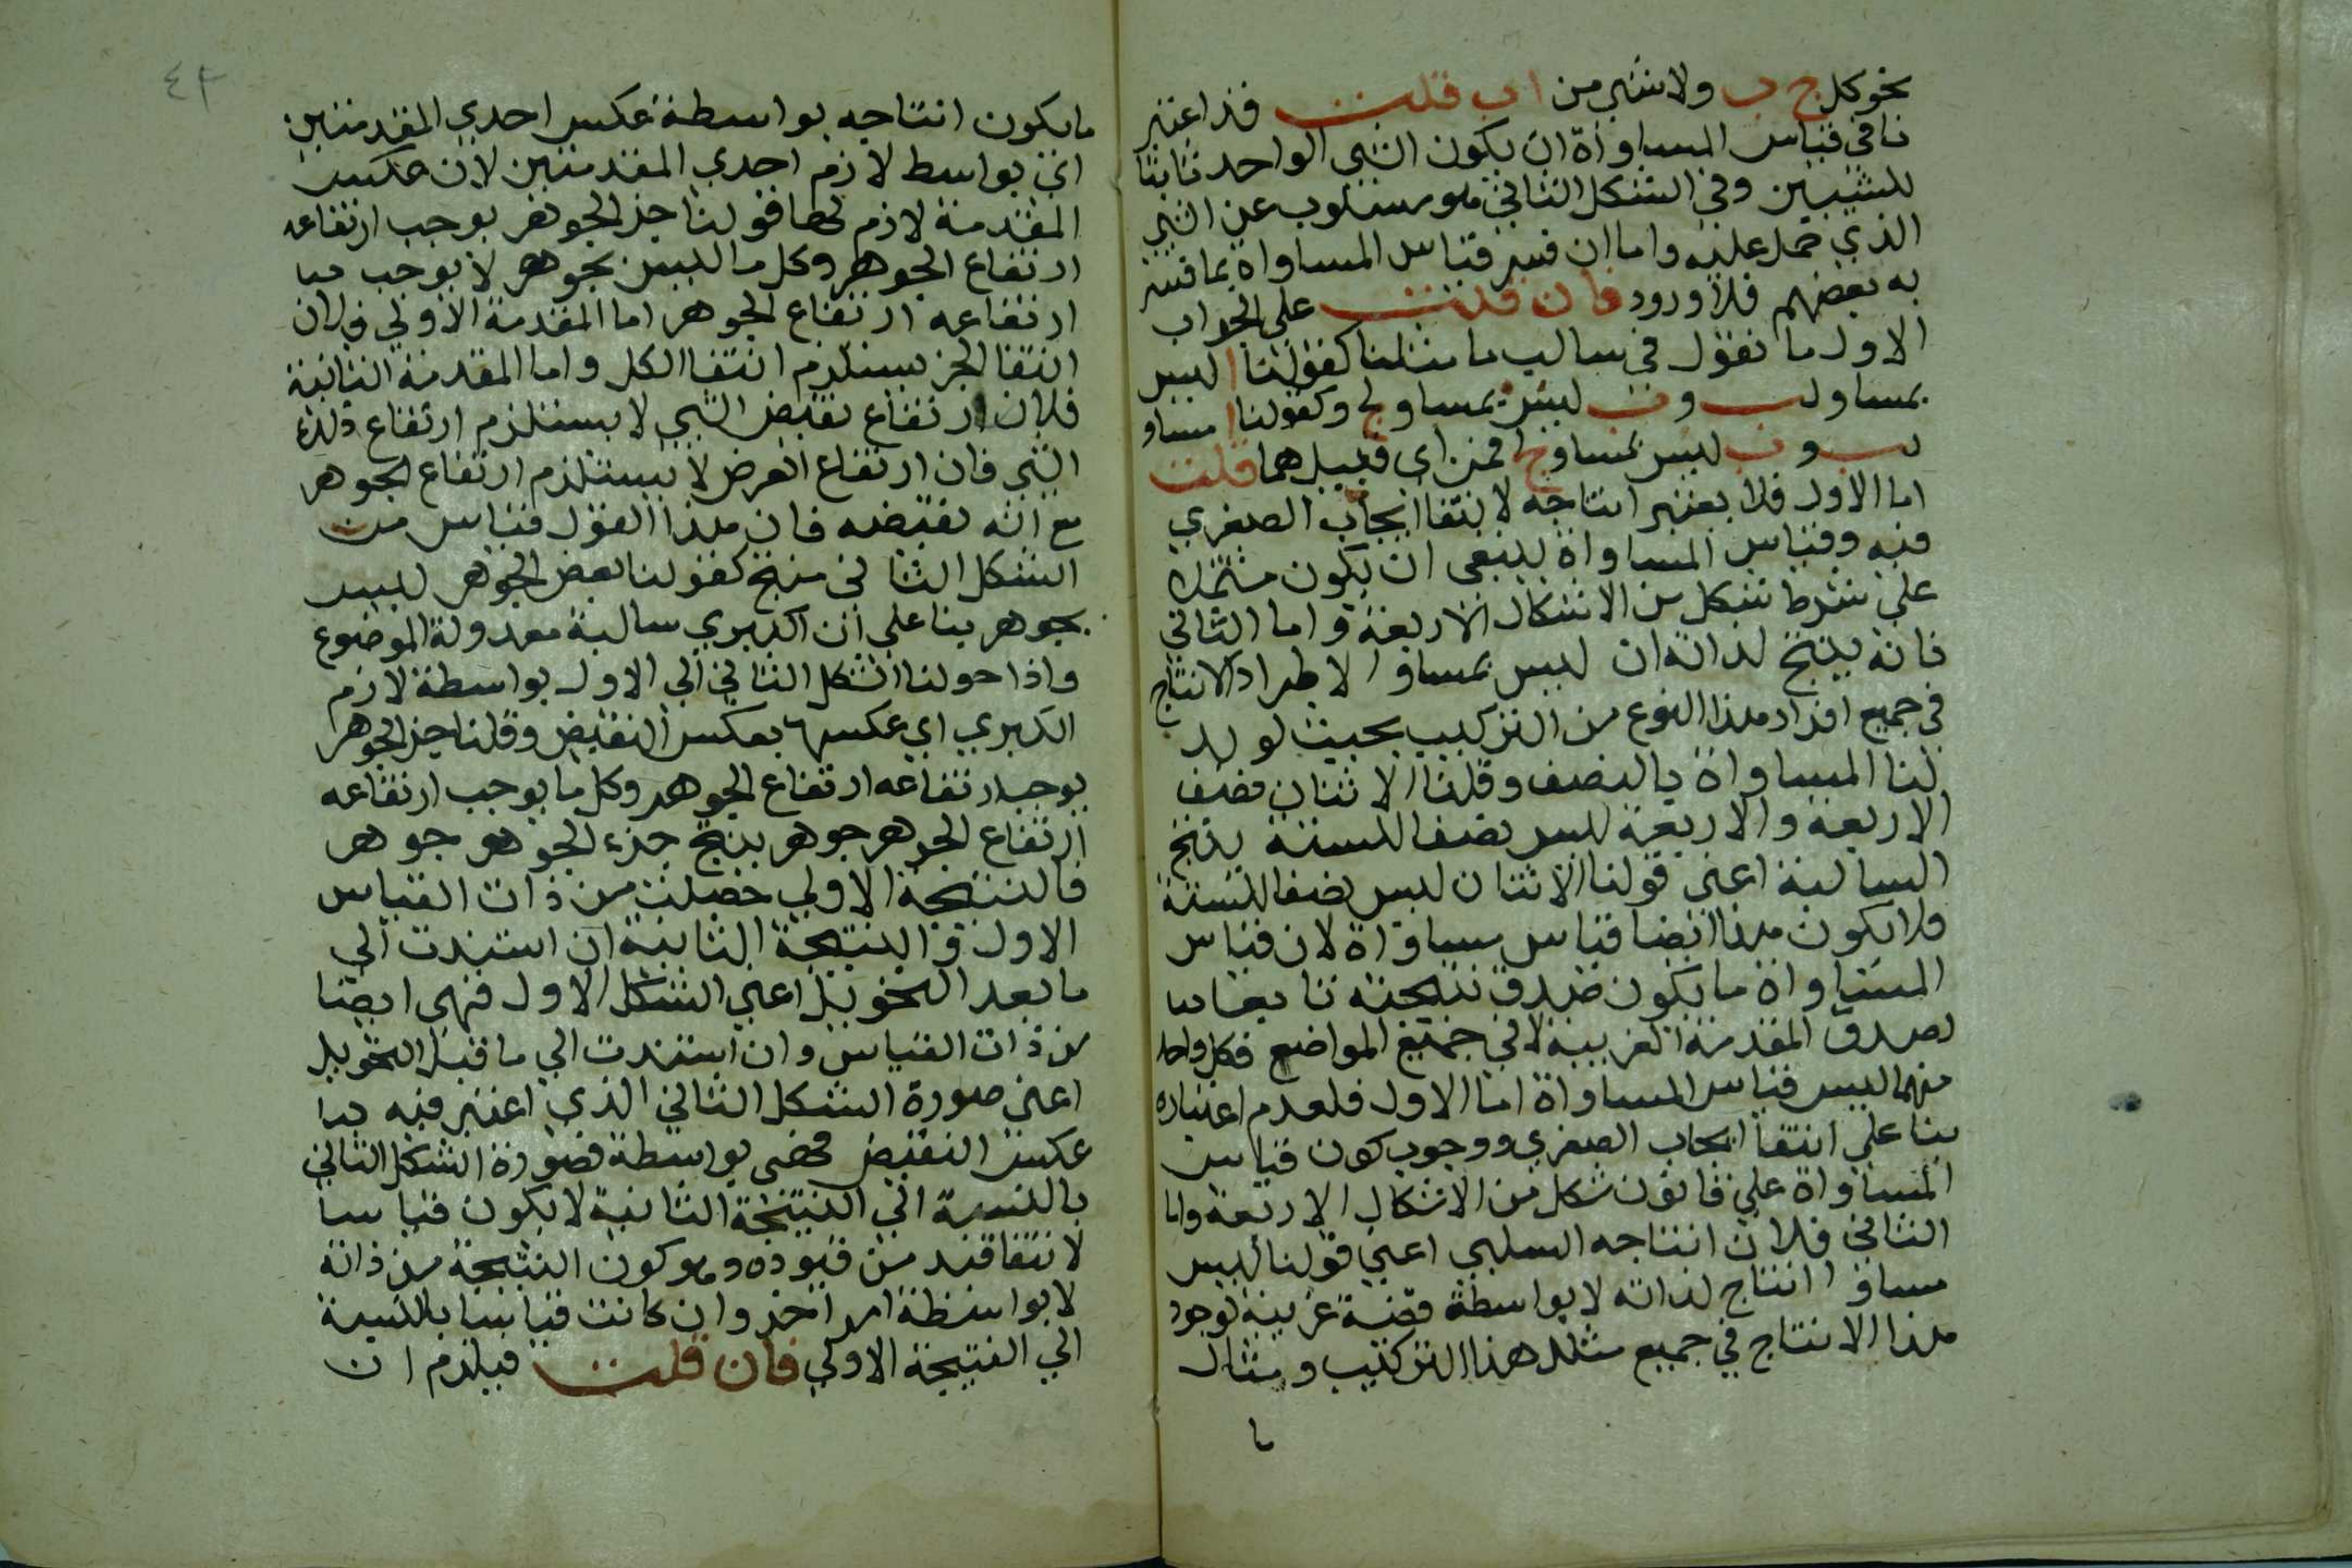 نحو كل ج ب ولا شيء من ا ب قلت قد اعتبر
نا في قياس المساواة ان يكون الشي الواحد ثابتا
للشيئين وفي الشكل الثاني هو مسلوب عن الشي
الذي حمل عليه واما ان فسر قياس المساواة بما فسر
به بعضهم فلا ورود فان قلت علي الجواب
الاول ما نقول في سالب ما مثلنا كقولنا ا ليس
بمساو لب و ب ليس بمساو لج وكقولنا ا مساو
لب و ب ليس بمساو لج فمن اي قبيل هما قلت
اما الاول فلا يعتبر انتاجه لانتفا ايجاب الصغري
فيه وقياس المساواة ينبغي ان يكون مشتملا
علي شرط شكل من الاشكال الاربعة واما الثاني
فانه ينتج لذاته ان ليس بمساو لاطراد الانتاج
في جميع افراد هذا النوع من التركيب بحيث لو بدل
لنا المساواة بالنصف وقلنا الاثنان نصف
الاربعة والاربعة ليس نصفا للستة ينتج
السالبة اعني قولنا الاثنان ليس نصفا للستة
فلا يكون هذا ايضا قياس مساواة لان قياس
المساواة ما يكون صدق نتيجته تابعا
لصدق المقدمة الغريبة لا في جميع المواضع فكل واحد
منهما ليس قياس المساواة اما الاول فلعدم اعتباره
بنا علي انتفا ايجاب الصغري ووجوب كون قياس
المساواة علي قانون شكل من الاشكال الاربعة واما
الثاني فلان انتاجه السلبي اعني قولنا ليس
مساو ا انتاج لذاته لا بواسطة مقدمة غريبة لوجود
هذا الانتاج في جميع مثل هذا التركيب ومثال
ما
٤٢
ما يكون انتاجه بواسطة عكس احدي المقدمتين
اي بواسط لازم احدي المقدمتين لان عكس
المقدمة لازم لها قولنا جز الجوهر يوجب ارتفاعه
ارتفاع الجوهر وكل ما ليس بجوهر لا يوجب
ارتفاعه ارتفاع الجوهر اما المقدمة الاولي فلان
انتفا الجز يستلزم انتفا الكل واما المقدمة الثانية
فلان ارتفاع نقيض الشي لا يستلزم ارتفاع ذلك
الشي فان ارتفاع العرض لا يستلزم ارتفاع الجوهر
مع انه نقيضه فان هذا القول قياس من
الشكل الثاني منتج كقولنا بعض الجوهر ليس
بجوهر بنا علي ان الكبري سالبة معدولة الموضوع
واذا حولنا الشكل الثاني الي الاول بواسطة لازم
الكبري اي عكسها بعكس النقيض وقلنا جز الجوهر
يوجب ارتفاعه ارتفاع الجوهر وكل ما يوجب ارتفاعه
ارتفاع الجوهر جوهر ينتج جزء الجوهر جوهر
فالنتيجة الاولي حصلت من ذات القياس
الاول والنتيجة الثانية ان استندت الي
ما بعد التحويل اعني الشكل الاول فهي ايضا
من ذات القياس وان استندت الي ما قبل التحويل
اعني صورة الشكل الثاني الذي اعتبر فيه
عكس النقيض فهي بواسطة فصورة الشكل الثاني
بالنسبة الي النتيجة الثانية لا يكون قياسا
لانتفا قيد من قيوده وهو كون النتيجة من ذاته
لا بواسطة امر اخر وان كانت قياسا بالنسبة
الي النتيجة الاولي فان قلت فيلزم ان